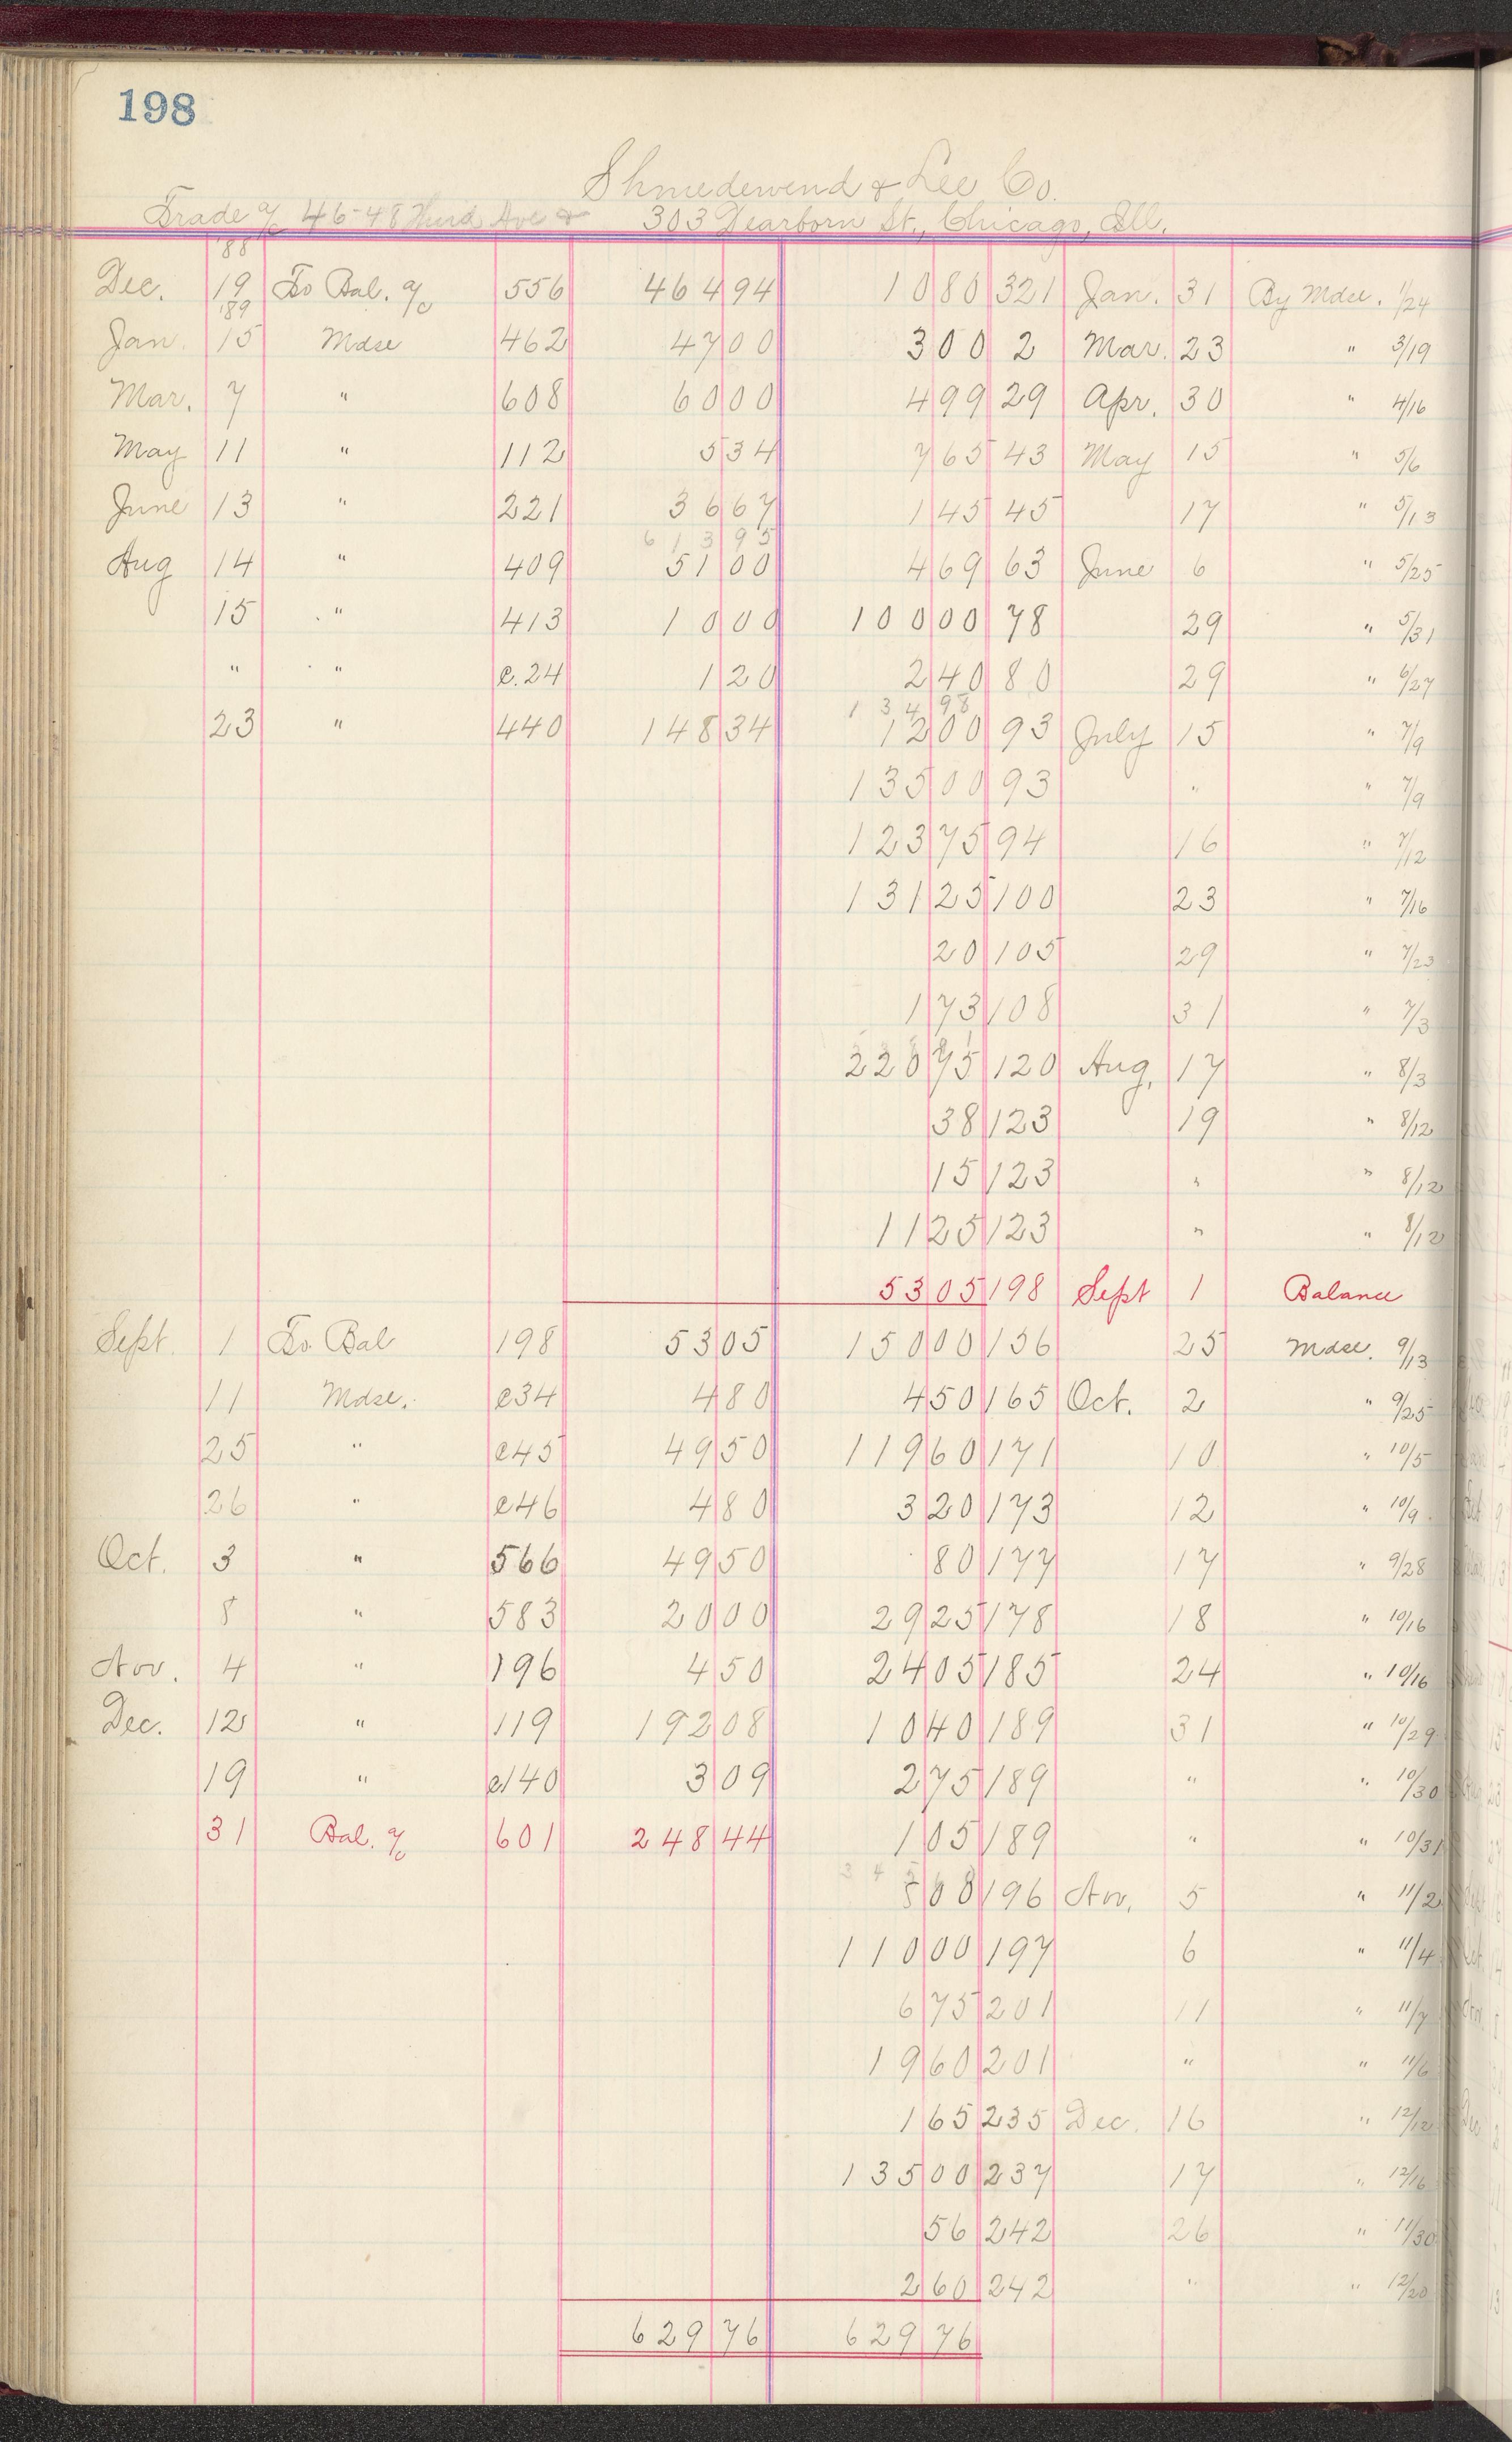 198
Shniedewend & Lee Co.
Trade a/c 46-48 Third Ave & 303 Dearborn St., Chicago, Ill.
'88
Dec. 19 To Bal. a/c 556 464 94 10 80 321 Jan. 31 By Mdse. 1/24
'89
Jan. 15 Mdse 462 47 00 30 0 2 Mar. 23 " 3/19
Mar. 7 " 608 60 00 4 99 29 Apr. 30 " 4/16
May 11 " 112 5 34 7 65 43 May 15 " 5/6
June 13 " 221 36 67 1 45 45 17 " 5/13
6 1 3 9 5
Aug 14 " 409 51 00 4 69 63 June 6 " 5/25
15 " 413 10 00 100 00 78 29 " 5/31
" " C.24 1 20 2 40 80 29 " 6/27
1 3 4 9 8
23 " 440 148 34 12 00 93 July 15 " 7/9
135 00 93 " " 7/9
123 75 94 16 " 7/12
131 25 100 23 " 7/16
20 105 29 " 7/23
1 73 108 31 " 7/3
220 75 120 Aug. 17 " 8/3
38 123 19 " 8/12
15 123 " " 8/12
11 25 123 " " 8/12
53 05 198 Sept 1 Balance
Sept. 1 To Bal 198 53 05 150 00 156 25 Mdse. 9/13
11 Mdse. C34 4 80 4 50 165 Oct. 2 " 9/25
25 " C45 49 50 119 60 171 10 " 10/5
26 " C46 4 80 3 20 173 12 " 10/9
Oct. 3 " 566 49 50 80 177 17 " 9/28
8 " 583 20 00 29 25 178 18 " 10/16
Nov. 4 " 196 4 50 24 05 185 24 " 10/16
Dec. 12 " 119 192 08 10 40 189 31 " 10/29
19 " C140 3 09 2 75 189 " " 10/30
31 Bal. a/c 601 248 44 1 05 189 " " 10/31
5 08 196 Nov. 5 " 11/2
110 00 197 6 " 11/4
6 75 201 11 " 11/7
19 60 201 " " 11/6
1 65 235 Dec. 16 " 12/12
135 00 237 17 " 12/16
56 242 26 " 11/30
2 60 242 " " 12/20
629 76 629 76